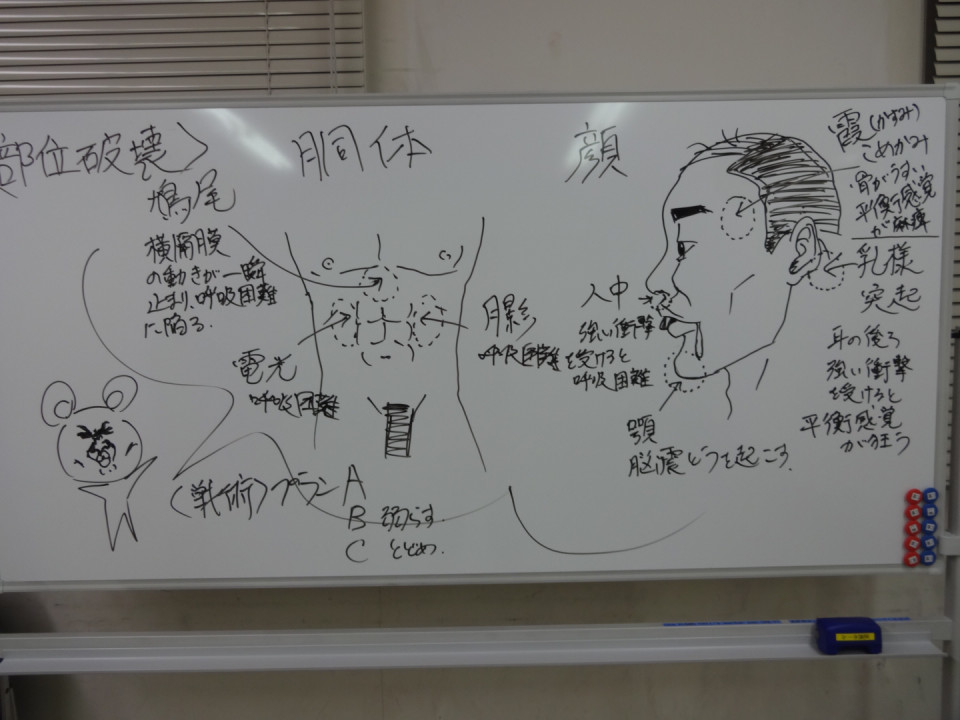 部位破壊〉
胴体
顔
鳩尾
横隔膜
の動きが一瞬
止まり、呼吸困難
に陥る.
電光
呼吸困難
月影
呼吸困難
人中
強い衝撃
を受けると
呼吸困難
顎
脳震とうを起こす.
霞(かすみ)
こめかみ
骨がうすい
平衡感覚
が麻痺
乳様
突起
耳の後ろ
強い衝撃
を受けると
平衡感覚
が狂う
(戦術)プランA
B 弱らす.
C とどめ.